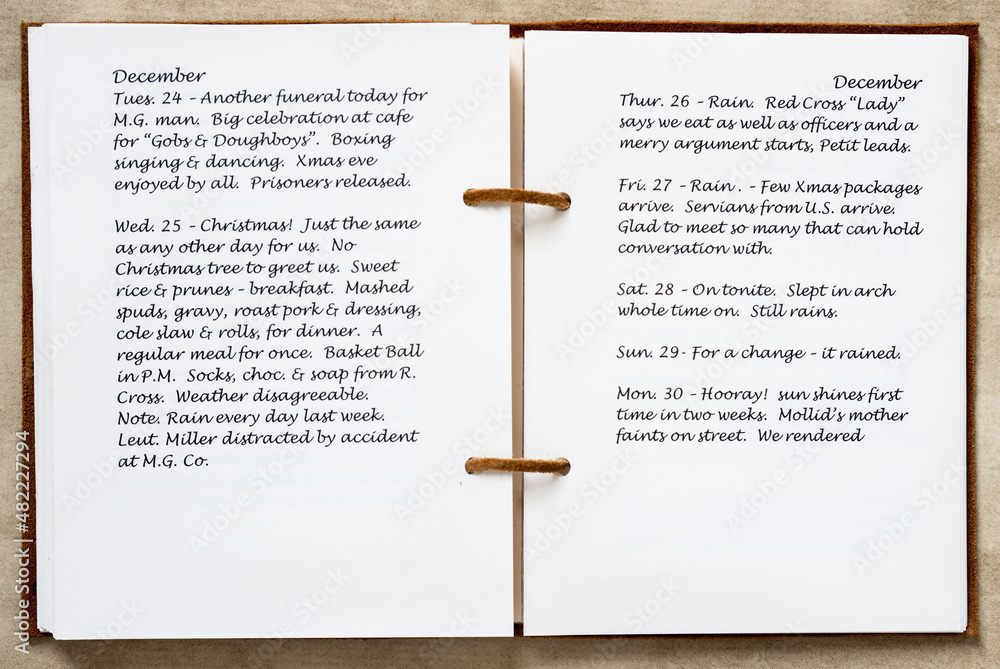 December
Tues. 24 - Another funeral today for
M.G. man. Big celebration at cafe
for "Gobs & Doughboys". Boxing
singing & dancing. Xmas eve
enjoyed by all. Prisoners released.
Wed. 25 - Christmas! Just the same
as any other day for us. No
Christmas tree to greet us. Sweet
rice & prunes - breakfast. Mashed
spuds, gravy, roast pork & dressing,
cole slaw & rolls, for dinner. A
regular meal for once. Basket Ball
in P.M. Socks, choc. & soap from R.
Cross. Weather disagreeable.
Note. Rain every day last week.
Leut. Miller distracted by accident
at M.G. Co.
December
Thur. 26 - Rain. Red Cross "Lady"
says we eat as well as officers and a
merry argument starts, Petit leads.
Fri. 27 - Rain. - Few Xmas packages
arrive. Servians from U.S. arrive.
Glad to meet so many that can hold
conversation with.
Sat. 28 - On tonite. Slept in arch
whole time on. Still rains.
Sun. 29- For a change - it rained.
Mon. 30 - Hooray! sun shines first
time in two weeks. Mollid's mother
faints on street. We rendered
Adobe Stock | #482227294